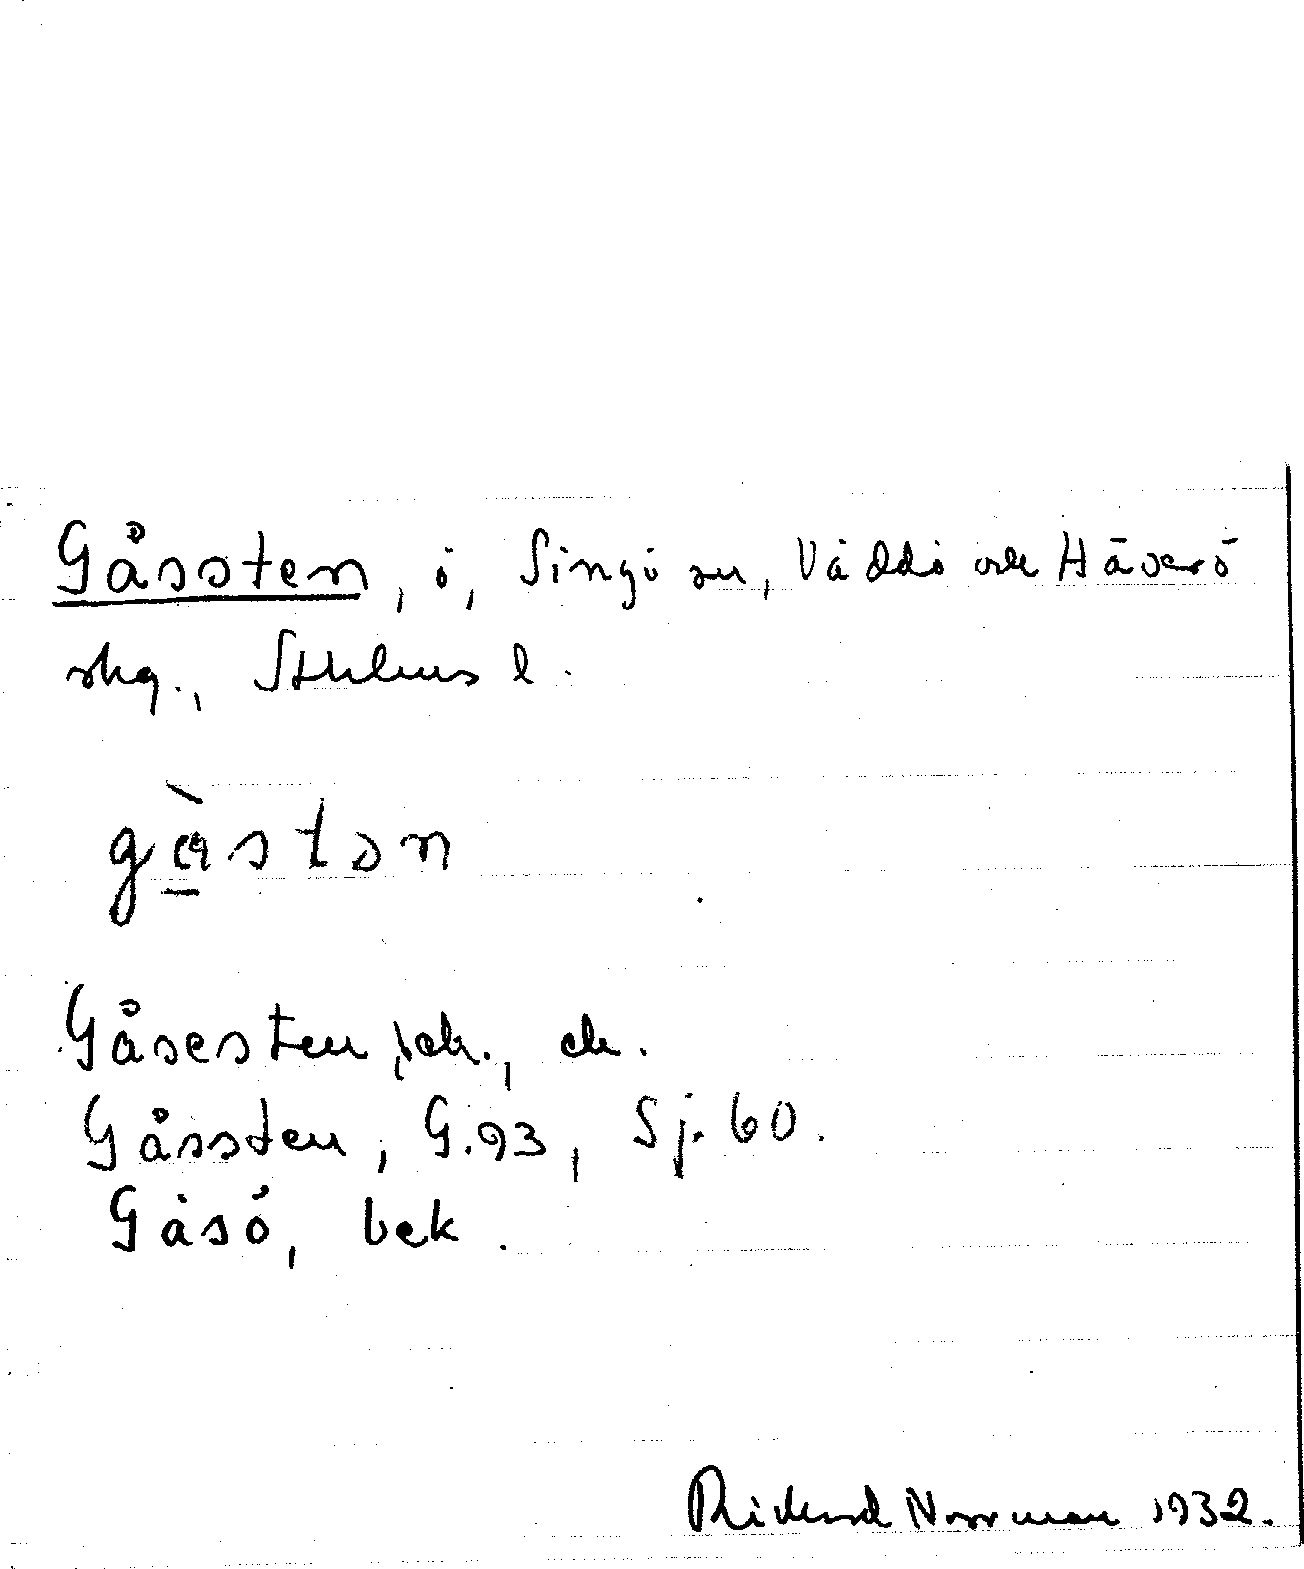 Gåssten, ö, Singö sn, Väddö och Häverö
skg., Sthlms l.
gàstən
Gåsesten, ek.
Gåssten, G.93, Sj. 60.
Gåsö, bek.
Rickard Norrman 1932.